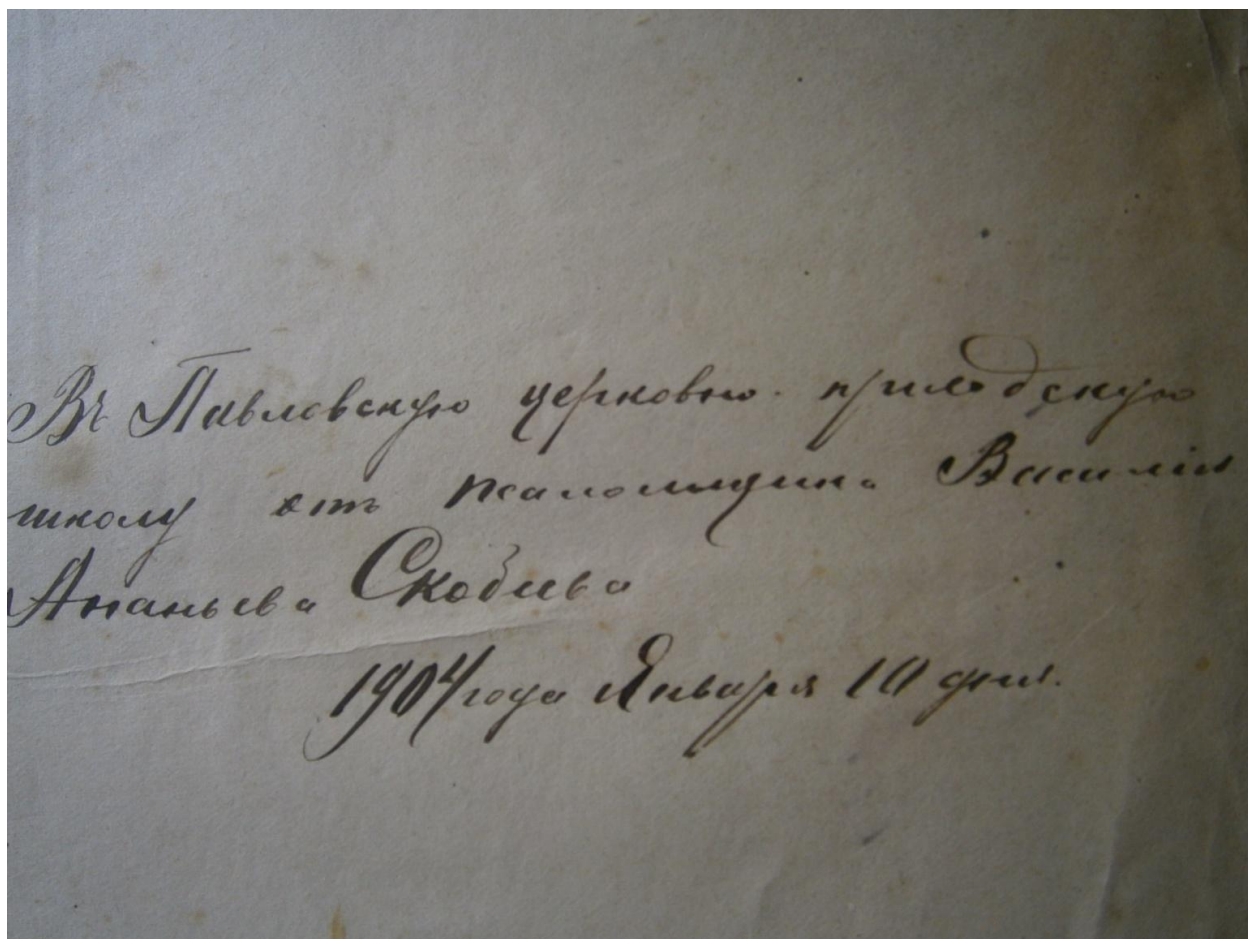 Въ Павловскую церковно. приходскую
школу отъ псаломщика Василія
Ананьева Скобѣева
1904 года Января 10 дня.